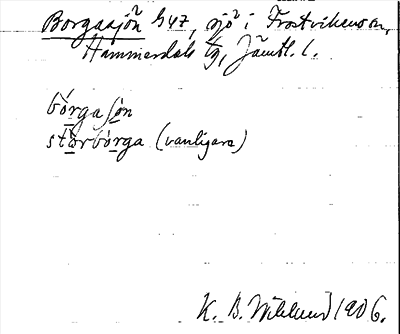 Borgasjön 547, sjö i Frostvikens sn,
Hammerdals tg, Jämtl. l.
bórgasjo̱n
stɑ̱rbórga (vanligare)
K. B. Wiklund 1906.